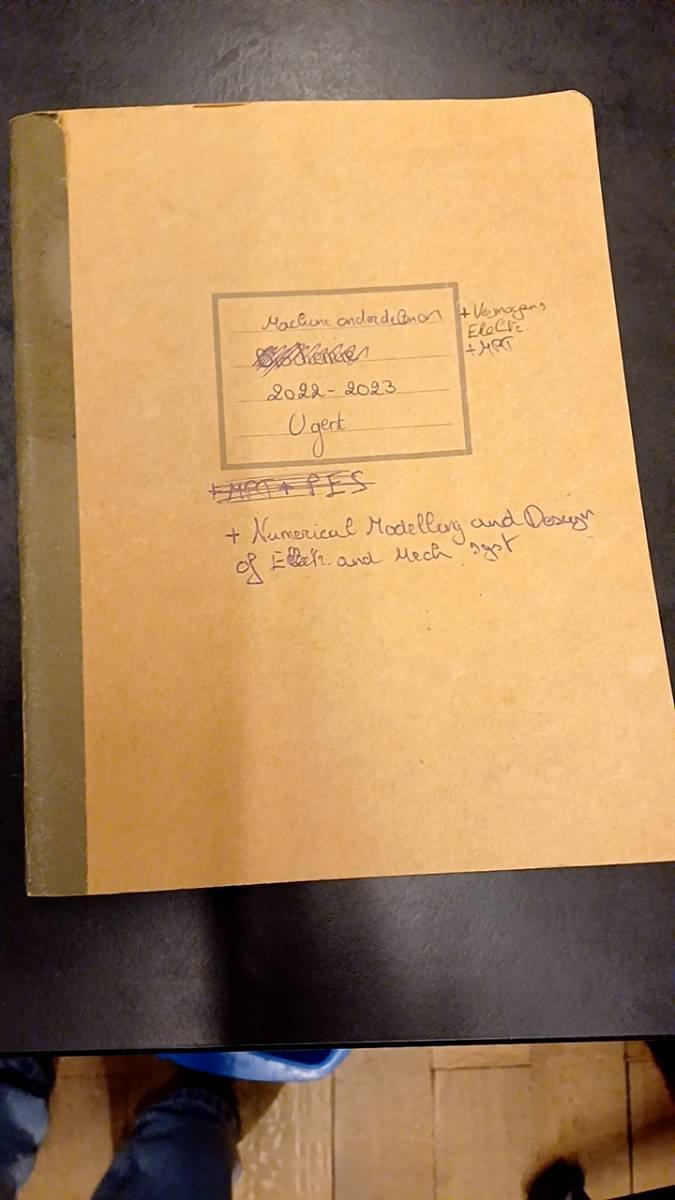 Machine onderdelen
2022-2023
Ugent
+ Vermogens
Elektr.
+ MRT
+ MRT + PES
+ Numerical Modelling and Design
of Electr. and Mech. syst